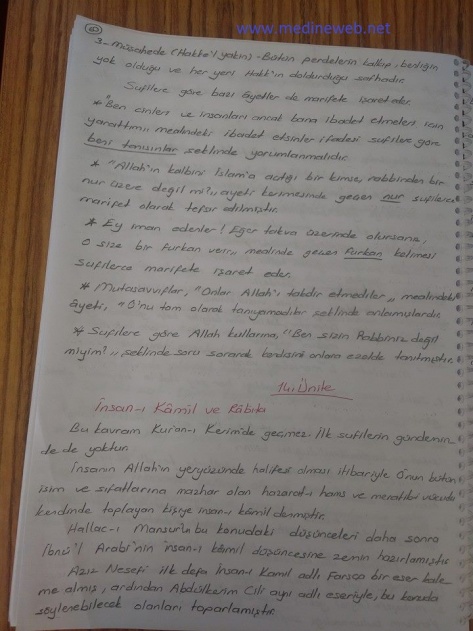 www.medineweb.net
3- Müşahede (Hakke'l yakin) - Bütün perdelerin kalkıp, benliğin
yok olduğu ve her yeri Hakk'ın doldurduğu safhadır.
Sufilere göre bazı âyetler de marifete işaret eder.
* "Ben cinleri ve insanları ancak bana ibadet etmeleri için
yarattım,, mealindeki ibadet etsinler ifadesi sufilere göre
beni tanısınlar şeklinde yorumlanmalıdır.
* "Allah'ın kalbini İslam'a açtığı bir kimse, rabbinden bir
nur üzere değil mi?,, ayeti kerimesinde geçen nur sufilerce
marifet olarak tefsir edilmiştir.
* Ey iman edenler! Eğer takva üzerinde olursanız,
O size bir furkan verir,, mealinde geçen furkan kelimesi
sufilerce marifete işaret eder.
* Mutasavvıflar, "Onlar Allah'ı takdir etmediler,, mealindeki
âyeti, "O'nu tam olarak tanıyamadılar şeklinde anlamışlardır.
* Sufilere göre Allah kullarına, "Ben sizin Rabbiniz değil
miyim?,, şeklinde soru sorarak kendisini onlara ezelde tanıtmıştır.
14. Ünite
İnsan-ı Kâmil ve Râbıta
Bu kavram Kur'an-ı Kerim'de geçmez. İlk sufilerin gündemin
de de yoktur.
İnsanın Allah'ın yeryüzünde halifesi olması itibariyle O'nun bütün
isim ve sıfatlarına mazhar olan hazarat-ı hams ve meratibi vücudu
kendinde toplayan kişiye insan-ı kâmil denmiştir.
Hallac-ı Mansur'un bu konudaki düşünceleri daha sonra
İbnü'l Arabi'nin insan-ı kâmil düşüncesine zemin hazırlamıştır.
Aziz Nesefi ilk defa İnsan-ı Kamil adlı Farsça bir eser kale
me almış, ardından Abdülkerim Cili aynı adlı eseriyle, bu konuda
söylenebilecek olanları toparlamıştır.